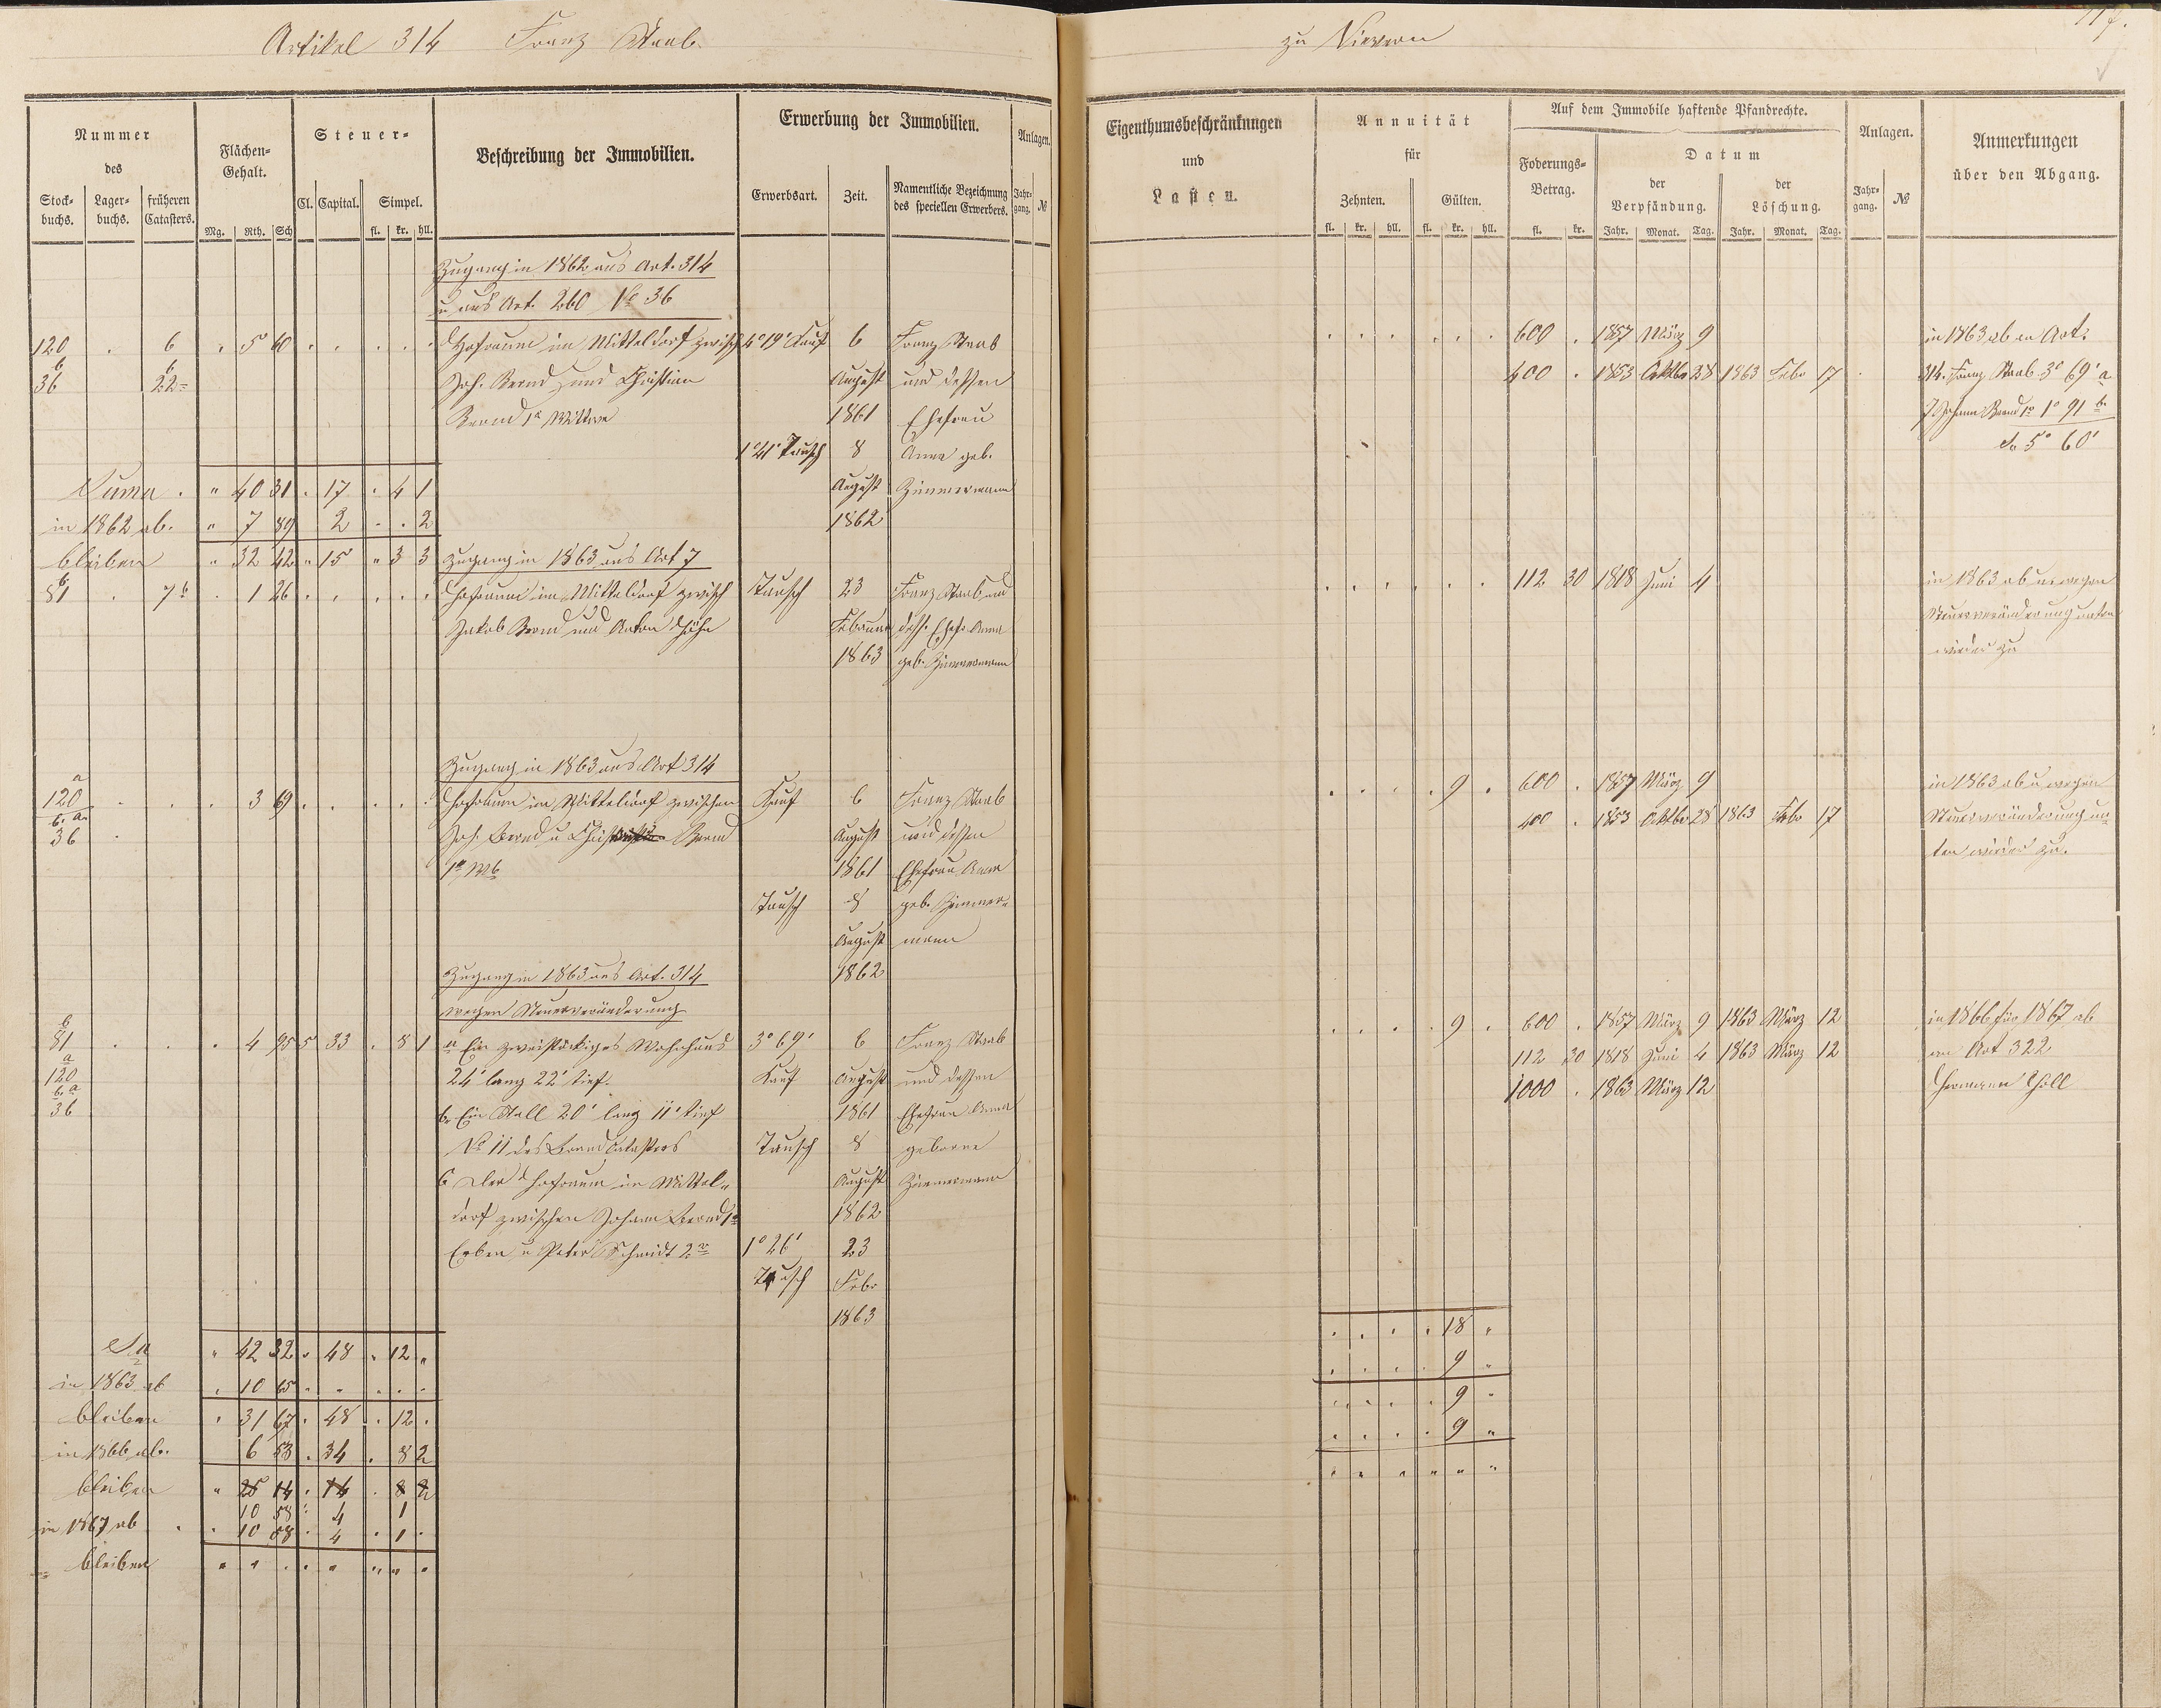 Artikel 314 Franz Staab
zu Nievern
117.
Nummer des
Stockbuchs. Lagerbuchs. früheren Catasters.
Flächen-Gehalt.
Mg. Rth. Sch
Steuer-
Cl. Capital. Simpel.
fl. kr. hll.
Beschreibung der Immobilien.
Erwerbung der Immobilien.
Erwerbsart. Zeit. Namentliche Bezeichnung des speciellen Erwerbers.
Anlagen.
Jahrgang. №
Eigenthumsbeschränkungen
und
Lasten.
Annuität
für
Zehnten. Gülten.
fl. kr. hll. fl. kr. hll.
Auf dem Immobile haftende Pfandrechte.
Foderungs-Betrag.
fl. kr.
Datum
der Verpfändung. der Löschung.
Jahr. Monat. Tag. Jahr. Monat. Tag.
Anlagen.
Jahrgang. №
Anmerkungen
über den Abgang.
Zugang in 1862 aus Art. 314
u aus Art. 260 No 36
120 6 5 60 Hofraum im Mitteldorf zwisch 4° 19' Kauf 6 Franz Staab 600 1857 März 9 in 1863 ab an Art.
b
36 22 Joh. Bernd und Christian August und dessen 400 1853 Oktbr 28 1863 Febr 17 314. Franz Staab 3° 69' a
Bernd 1r Wittwe 1861 Ehefrau 7 Johann Bernd 1r 1° 91 b.
1° 41' Tausch 8 Anna geb. Sa 5° 60'
Suma 40 31 17 4 1 August Zimmermann
in 1862 ab. 7 89 2 2 1862
bleiben 32 42 15 3 3 Zugang in 1863 aus Art 7
b
81 7b 1 26 Hofraum im Mitteldorf zwisch Tausch 23 Franz Staab und 112 30 1818 Juni 4 in 1863 ab u wegen
Jakob Bernd und Anton Höhn Februar dess. Ehefr. Anna Steuerveränderung unten
1863 geb. Zimmermann wieder zu
Zugang in 1863 aus Art 314
a
120 3 69 Hofraum im Mitteldorf zwischen Kauf 6 Franz Staab 9 600 1857 März 9 in 1863 ab u wegen
b. a.
36 Joh. Bernd u Christian Bernd August und dessen 400 1853 Oktbr 28 1863 Febr 17 Steuerveränderung un-
1r Wb 1861 Ehefrau Anna ten wieder zu.
Tausch 8 geb. Zimmer-
August mann
Zugang in 1863 aus Art. 314 1862
wegen Steuerveränderung
b
81 4 95 5 33 8 1 a Ein zweistöckiges Wohnhaus 3° 69' 6 Franz Staab 9 600 1857 März 9 1863 März 12 in 1866 für 1867 ab
a
120 24' lang 22' tief. Kauf August und dessen 112 30 1818 Juni 4 1863 März 12 an Art 322
b. a
36 b. Ein Stall 20' lang 11' tief 1861 Ehefrau Anna 1000 1863 März 12 Hermann Höll
No 11 des Brandcatasters Tausch 8 geborne
c Der Hofraum im Mittel- August Zimmermann
dorf zwischen Johann Bernd 1r 1862
Erben u Peter Schmidt 2r 1° 26' 23
Tausch Febr
1863
18
Sa 42 32 48 12
9
in 1863 ab 10 65
9
bleiben 31 67 48 12
9
in 1866 ab. 6 53 34 8 2
bleiben 25 14 14 8 2
10 58 4 1
in 1867 ab 10 58 4 1
bleiben